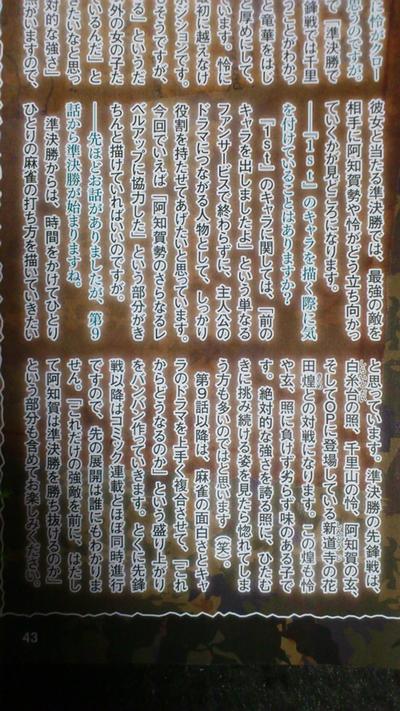 に怜がクロー
思うのですが、
て「準決勝で
鋒戦では千里
ことがわかっ
竜華をはじ
と厚めにして、
ます。怜に
初に越えなけ
ンションです。
そうですが、
る」というだ
外の女の子た
いるんだ」と
きたいなと思っ
対的な強さ
いますので、
彼女と当たる準決勝では、最強の敵を
相手に阿知賀勢や怜がどう立ち向かっ
ていくかが見どころになります。
――『1st』のキャラを描く際に気
を付けていることはありますか？
『1st』のキャラに関しては、「前の
キャラを出しましたよ」という単なる
ファンサービスで終わらずに、主人公の
ドラマにつながる人物として、しっかり
役割を持たせてあげたいと思っています。
今回でいえば「阿知賀勢のさらなるレ
ベルアップに協力した」という部分がき
ちんと描けていればいいのですが。
――先ほどお話がありましたが、第9
話から準決勝が始まりますね。
準決勝からは、時間をかけてひとり
ひとりの麻雀の打ち方を描いていきたい
と思っています。準決勝の先鋒戦は、
白糸台の照、千里山の怜、阿知賀の玄、
そしてOPに登場している新道寺の花
田煌との対戦になります。一応、煌や怜
や玄、照に負けず劣らず味のある子で
す。絶対的な強さを誇る照に、ひたむ
きに挑み続ける姿を見たら惚れてしま
う方も多いのではと思います（笑）。
第9話以降は、麻雀の面白さとキャ
ラのドラマを上手く複合させて、「これ
からどうなるのか」という盛り上がり
をバンバン作っていきます。とくに先鋒
戦以降はコミック連載とほぼ同時進行
ですので、先の展開は誰にもわかりま
せん。「これだけの強敵を前に、はたし
て阿知賀は準決勝を勝ち抜けるのか」
という部分も含めてお楽しみください。
43